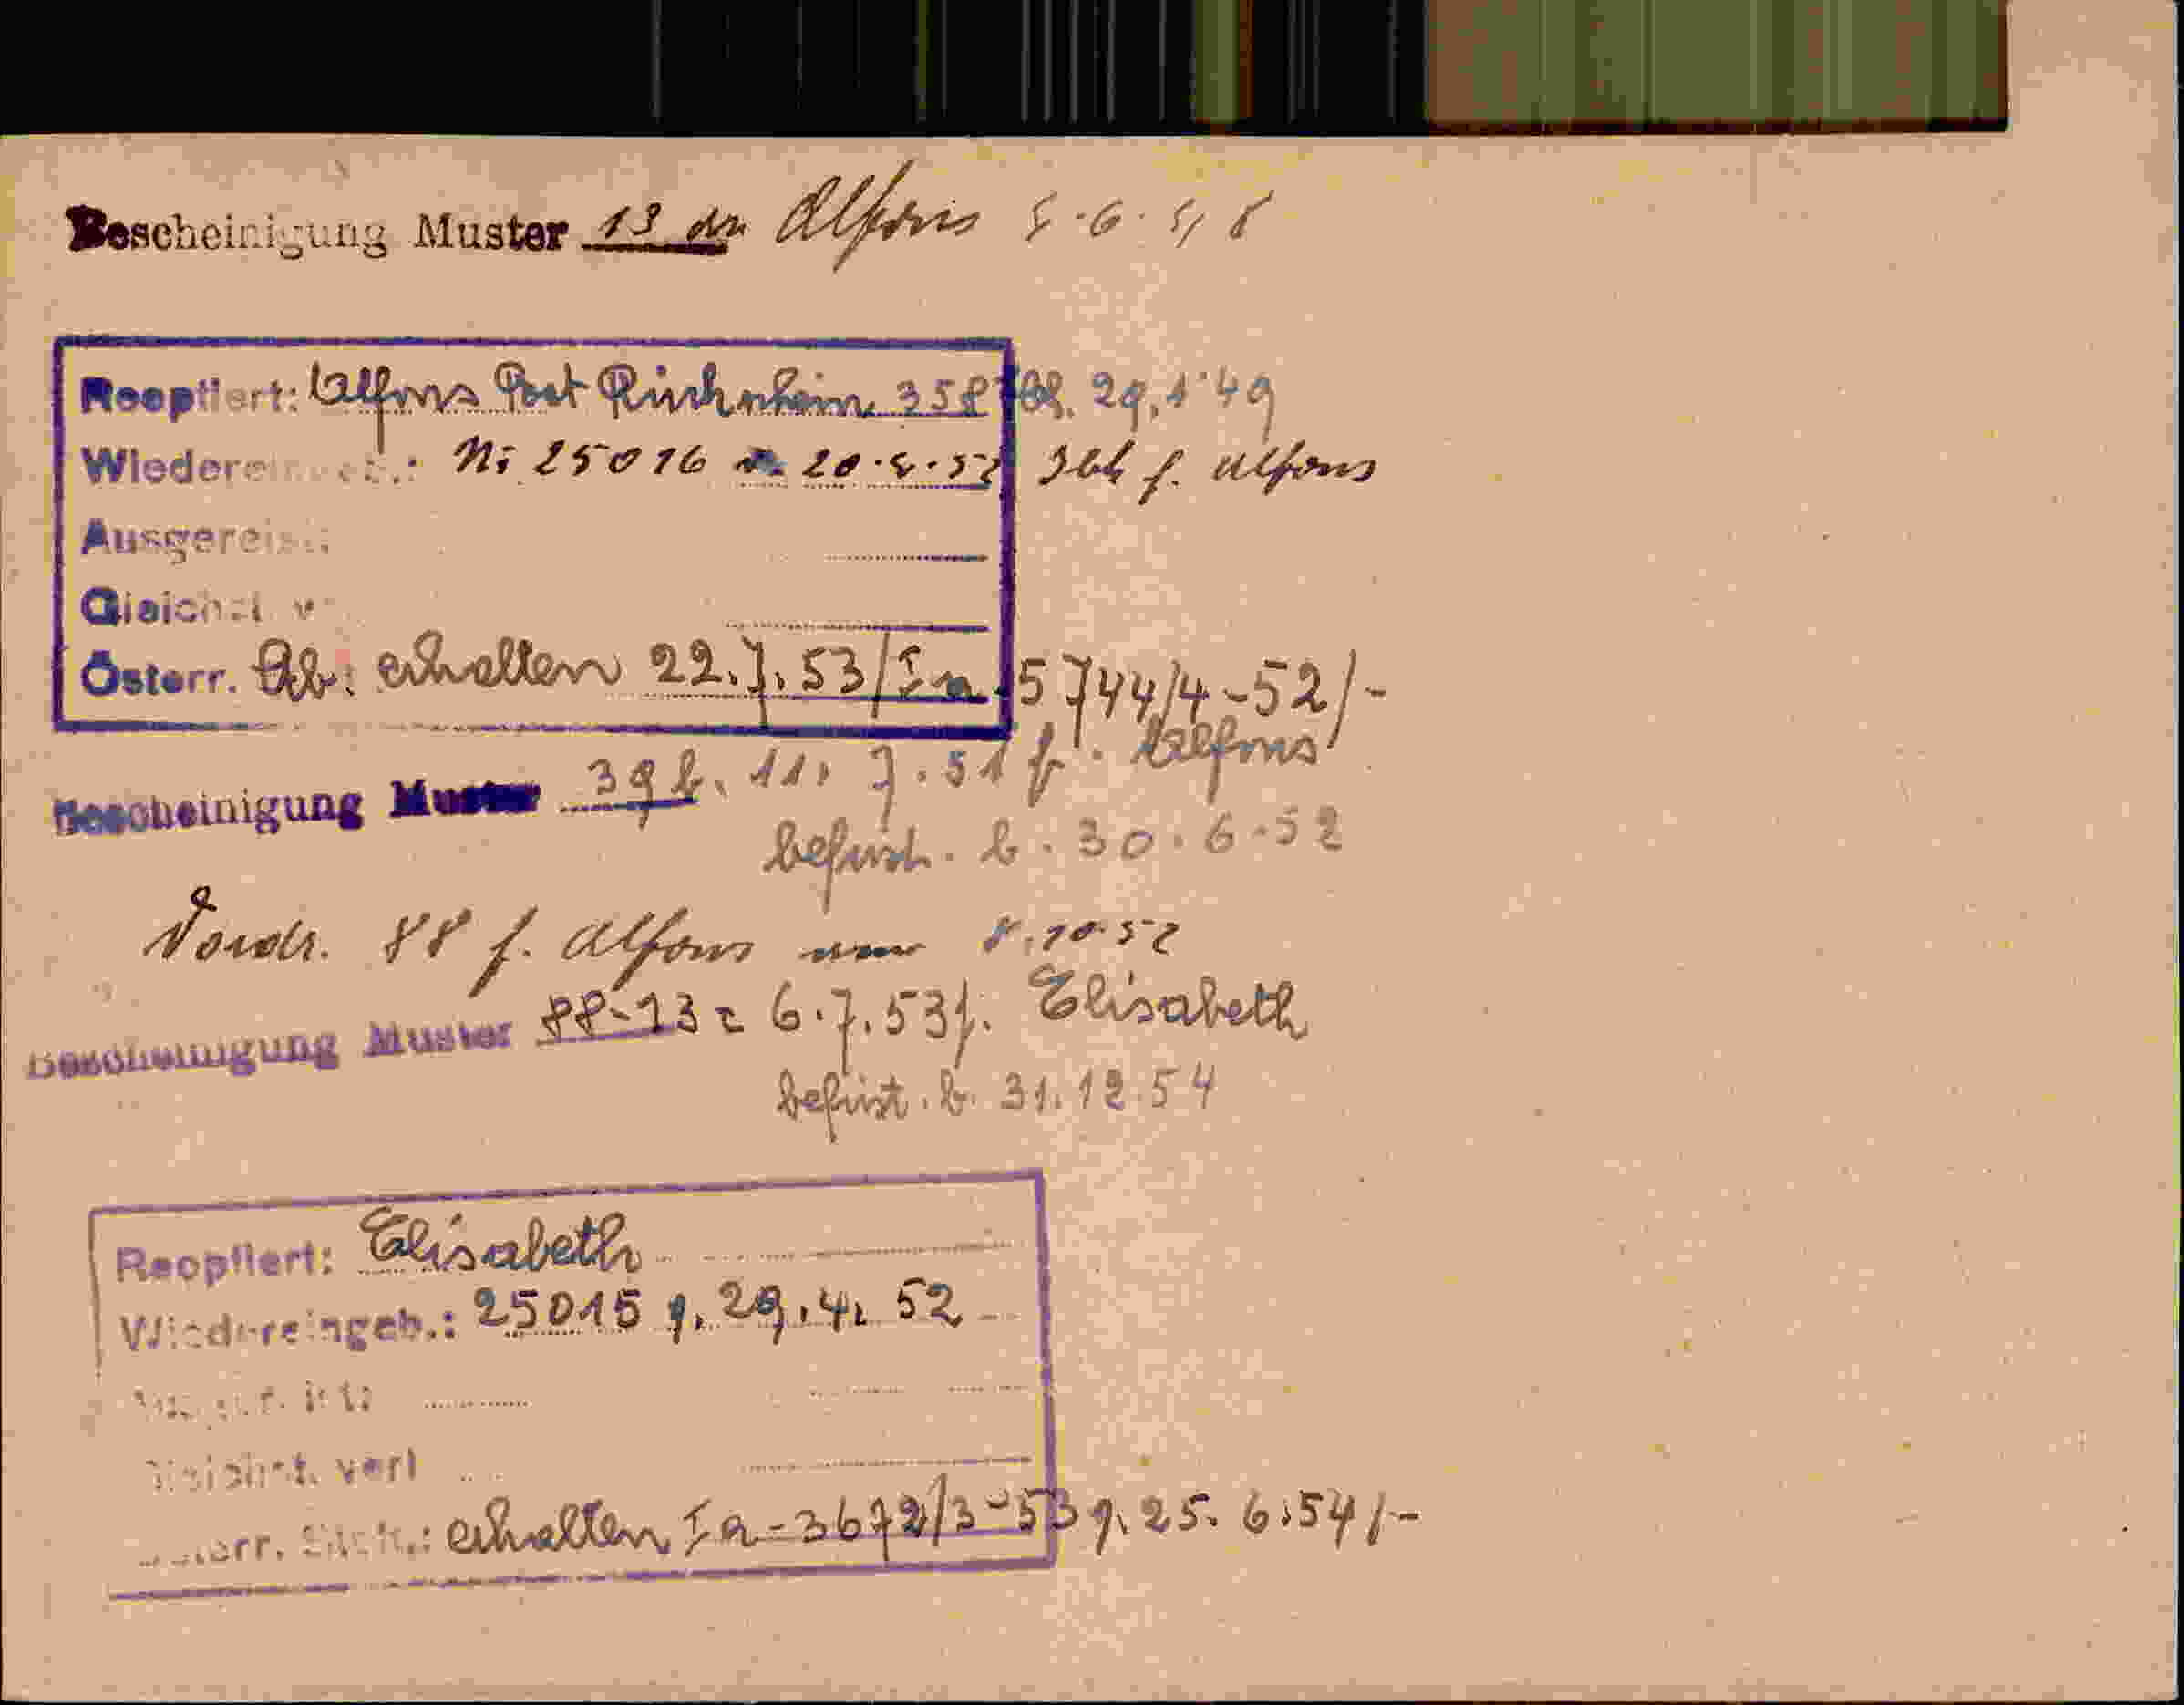 Bescheinigung Muster 13 Alfons
Reoptiert: Alfons Post 358 29.1.49
Wiedereingeb.: Nr 25016 f. Alfons
Ausgereist:
Gleichst. v
Österr. erhalten 22.7.53/Ia 5744/4-52/-
Bescheinigung Muster 39b. 11. 7. 51 f. Alfons
befrist. b. 30.6.52
Vordr. 88 f. Alfons
Bescheinigung Muster 88-13 6.7.53 f. Elisabeth
befrist. b. 31.12.54
Reoptiert: Elisabeth
Wiedereingeb.: 25015 29.4. 52
Gleichst. verl
erhalten Ia-3672/3-53 25. 6.54/-